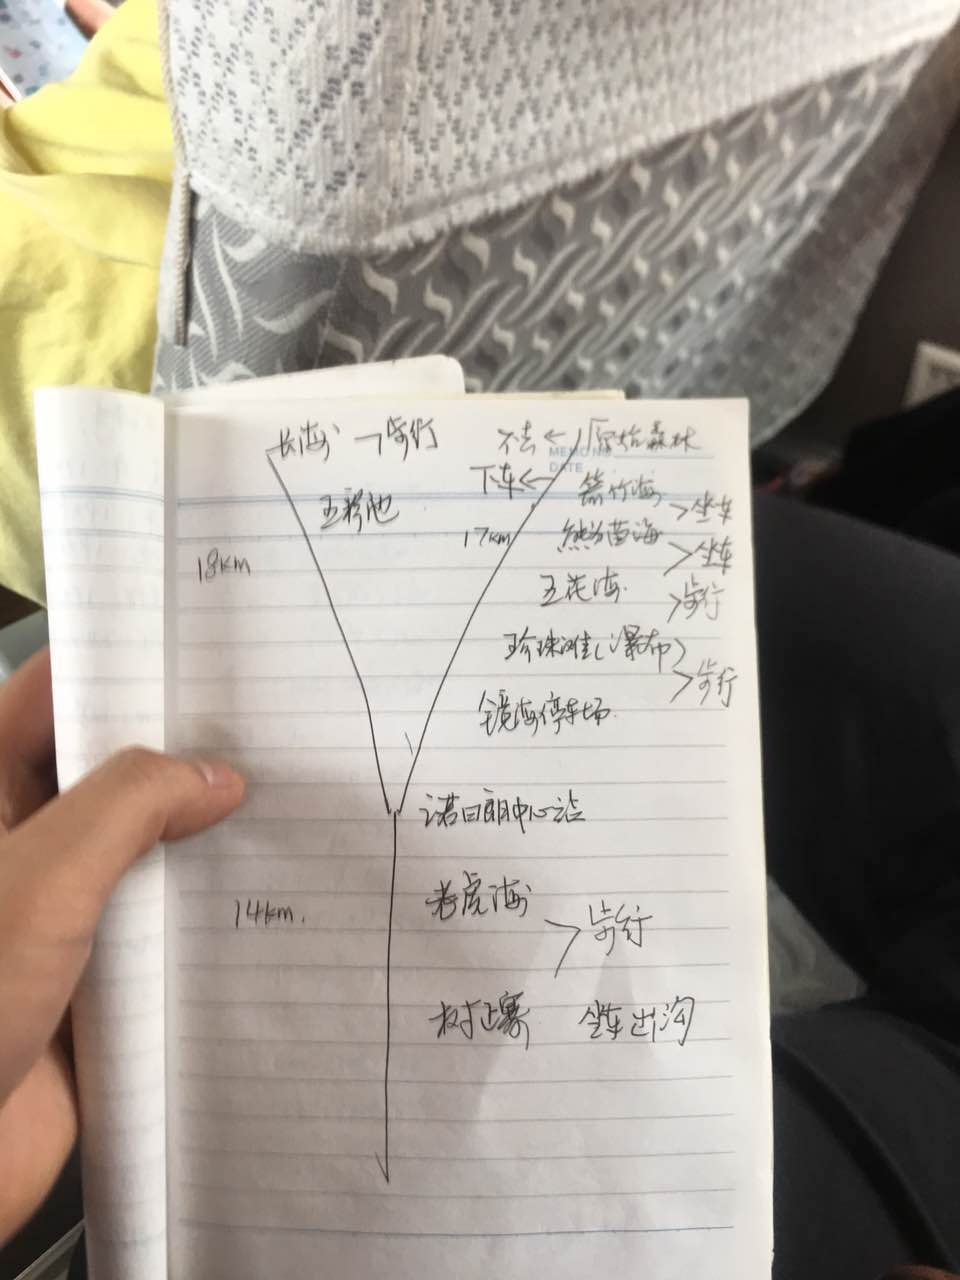 长海 → 步行
不去 ← 原始森林
MEMO NO
DATE
下车 ← 箭竹海
五彩池
坐车
17km
熊猫海
坐车
18km
五花海
步行
珍珠滩(瀑布)
步行
镜海停车场
诺日朗中心站
老虎海
14km.
步行
树正寨 坐车出沟